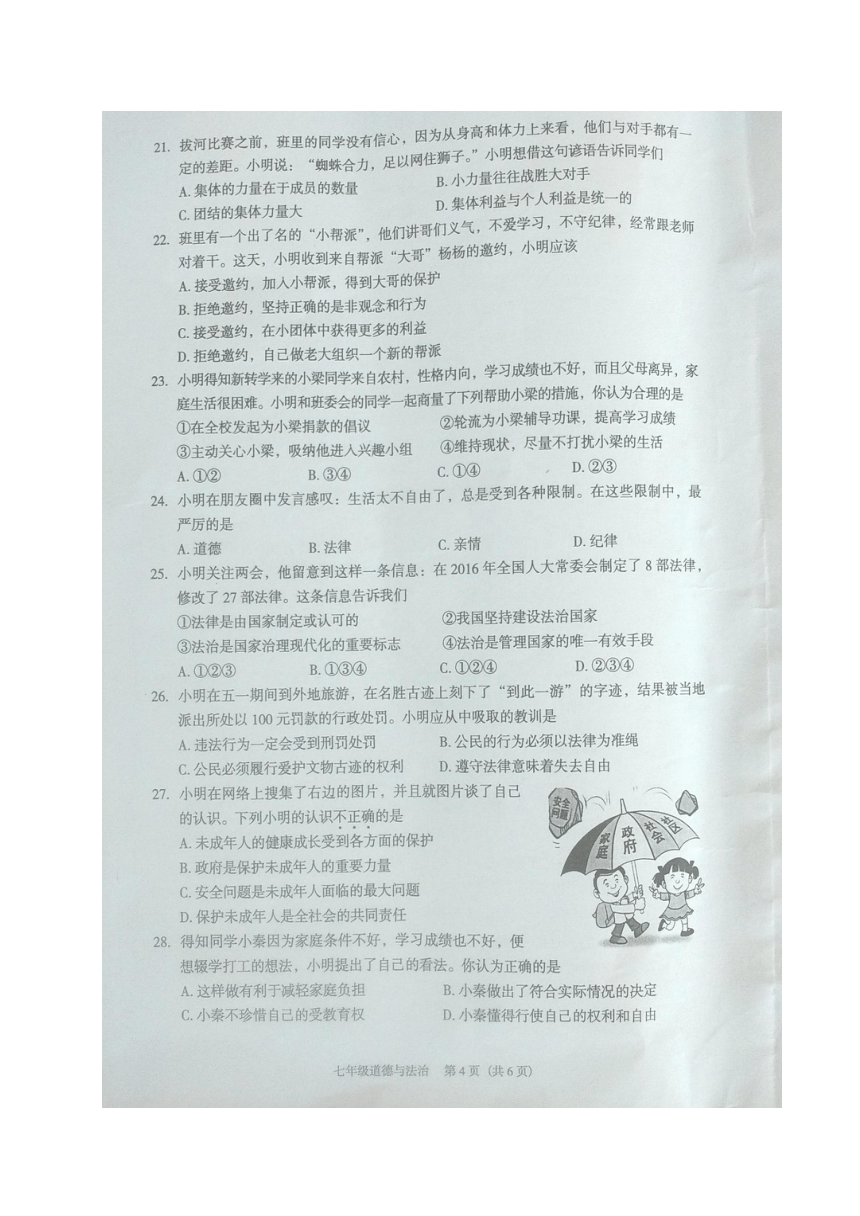 21. 拔河比赛之前，班里的同学没有信心，因为从身高和体力上来看，他们与对手都有一
定的差距。小明说：“蜘蛛合力，足以网住狮子。”小明想借这句谚语告诉同学们
A. 集体的力量在于成员的数量 B. 小力量往往战胜大对手
C. 团结的集体力量大 D. 集体利益与个人利益是统一的
22. 班里有一个出了名的“小帮派”，他们讲哥们义气，不爱学习，不守纪律，经常跟老师
对着干。这天，小明收到来自帮派“大哥”杨杨的邀约，小明应该
A. 接受邀约，加入小帮派，得到大哥的保护
B. 拒绝邀约，坚持正确的是非观念和行为
C. 接受邀约，在小团体中获得更多的利益
D. 拒绝邀约，自己做老大组织一个新的帮派
23. 小明得知新转学来的小梁同学来自农村，性格内向，学习成绩也不好，而且父母离异，家
庭生活很困难。小明和班委会的同学一起商量了下列帮助小梁的措施，你认为合理的是
①在全校发起为小梁捐款的倡议 ②轮流为小梁辅导功课，提高学习成绩
③主动关心小梁，吸纳他进入兴趣小组 ④维持现状，尽量不打扰小梁的生活
A. ①② B. ③④ C. ①④ D. ②③
24. 小明在朋友圈中发言感叹：生活太不自由了，总是受到各种限制。在这些限制中，最
严厉的是
A. 道德 B. 法律 C. 亲情 D. 纪律
25. 小明关注两会，他留意到这样一条信息：在 2016 年全国人大常委会制定了 8 部法律，
修改了 27 部法律。这条信息告诉我们
①法律是由国家制定或认可的 ②我国坚持建设法治国家
③法治是国家治理现代化的重要标志 ④法治是管理国家的唯一有效手段
A. ①②③ B. ①③④ C. ①②④ D. ②③④
26. 小明在五一期间到外地旅游，在名胜古迹上刻下了“到此一游”的字迹，结果被当地
派出所处以 100 元罚款的行政处罚。小明应从中吸取的教训是
A. 违法行为一定会受到刑罚处罚 B. 公民的行为必须以法律为准绳
C. 公民必须履行爱护文物古迹的权利 D. 遵守法律意味着失去自由
27. 小明在网络上搜集了右边的图片，并且就图片谈了自己
的认识。下列小明的认识不正确的是
A. 未成年人的健康成长受到各方面的保护
B. 政府是保护未成年人的重要力量
C. 安全问题是未成年人面临的最大问题
D. 保护未成年人是全社会的共同责任
安全
问题
家庭
政府
社会
社区
28. 得知同学小秦因为家庭条件不好，学习成绩也不好，便
想辍学打工的想法，小明提出了自己的看法。你认为正确的是
A. 这样做有利于减轻家庭负担 B. 小秦做出了符合实际情况的决定
C. 小秦不珍惜自己的受教育权 D. 小秦懂得行使自己的权利和自由
七年级道德与法治 第 4 页（共 6 页）